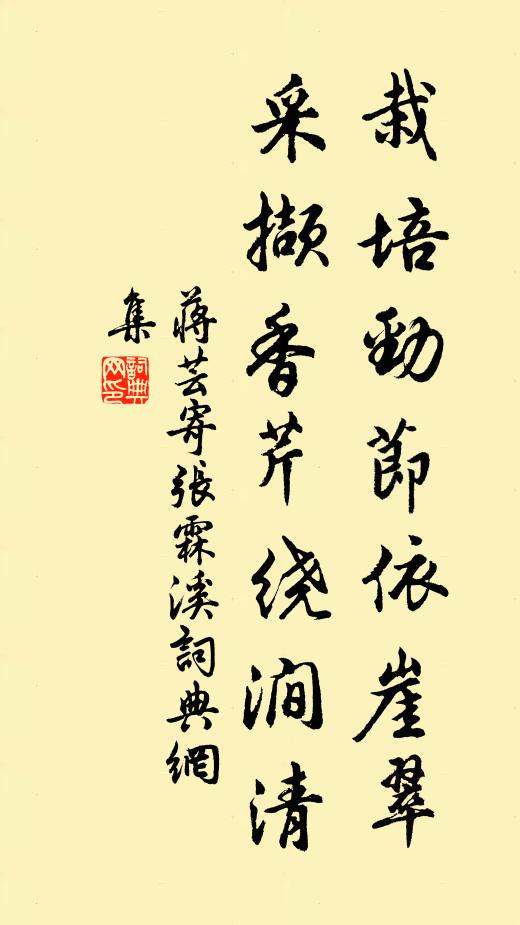 栽培勁莭依崖翠
采擷香芹绕澗清
蔣芸寄張霖溪詞典網
集
詞典
网印